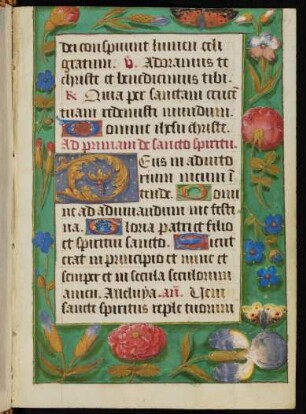 dei conspiciunt lumen celi
gratum. v. Adoramus te
christe et benedicimus tibi.
R Quia per sanctam cruce
tuam redemisti mundum.
Domine ihesu christe.
Ad primam de sancto spiritu.
Deus in adiuto
rium meum i
tende. Domi
ne ad adiuuandum me festi
na. Gloria patri et filio
et spiritui sancto. Sicut
erat in principio et nunc et
semper et in secula seculorum
amen. Alleluya. an. Veni
sancte spiritus reple tuorum